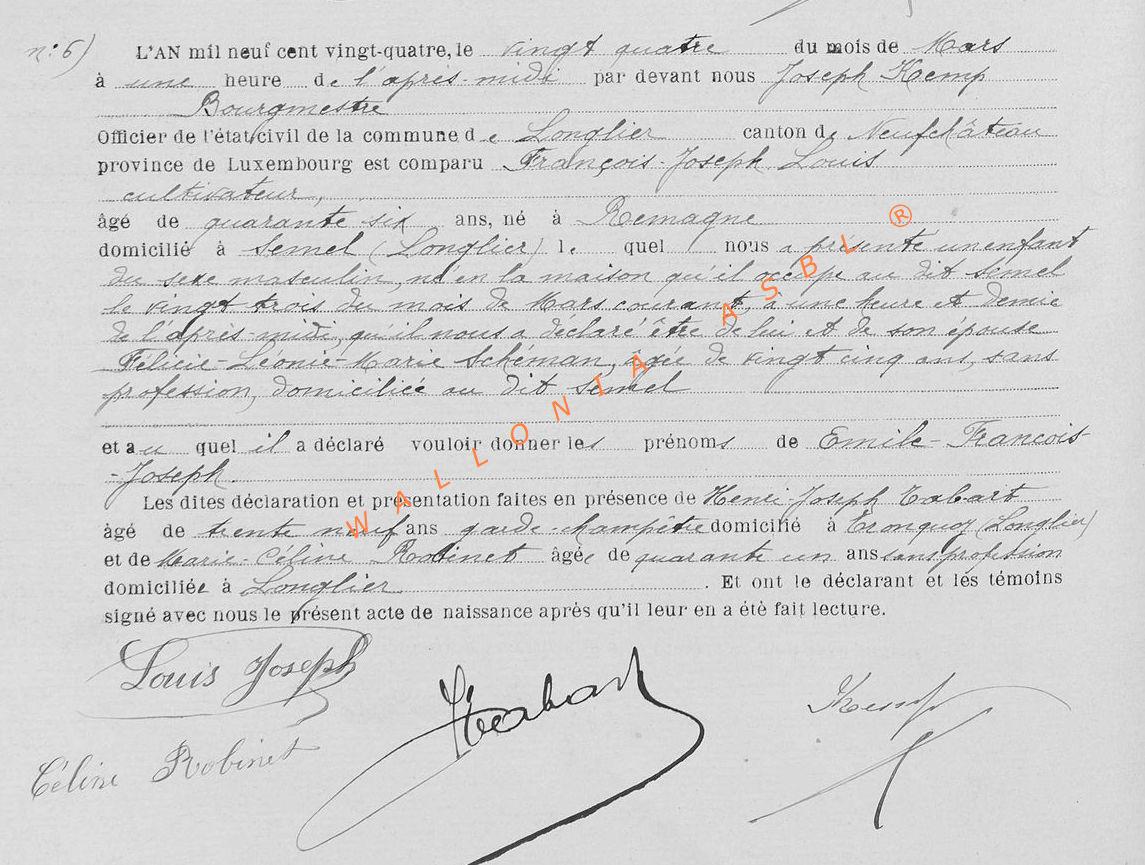 n: 6)
L'AN mil neuf cent vingt-quatre, le vingt quatre du mois de Mars
à une heure de l'après-midi par devant nous Joseph Kemp
Bourgmestre
Officier de l'état civil de la commune de Longlier canton de Neufchâteau
province de Luxembourg est comparu François-Joseph Louis
cultivateur,
âgé de quarante six ans, né à Remagne
domicilié à Semel (Longlier) lequel nous a présenté un enfant
du sexe masculin, né en la maison qu'il occupe au dit Semel
le vingt trois du mois de Mars courant, à une heure et demie
de l'après-midi, qu'il nous a déclaré être de lui et de son épouse
Félicie-Léonie-Marie Schéman, âgée de vingt cinq ans, sans
profession, domiciliée au dit Semel
et auquel il a déclaré vouloir donner les prénoms de Emile-François-
-Joseph.
Les dites déclaration et présentation faites en présence de Henri-Joseph Tabart
âgé de trente neuf ans garde-champêtre domicilié à Tronquoy (Longlier)
et de Marie-Céline Robinet âgée de quarante un ans sans profession
domiciliée à Longlier. Et ont le déclarant et les témoins
signé avec nous le présent acte de naissance après qu'il leur en a été fait lecture.
Louis Joseph
HTabart
Kemp
Céline Robinet
WALLONIA ASBL ®